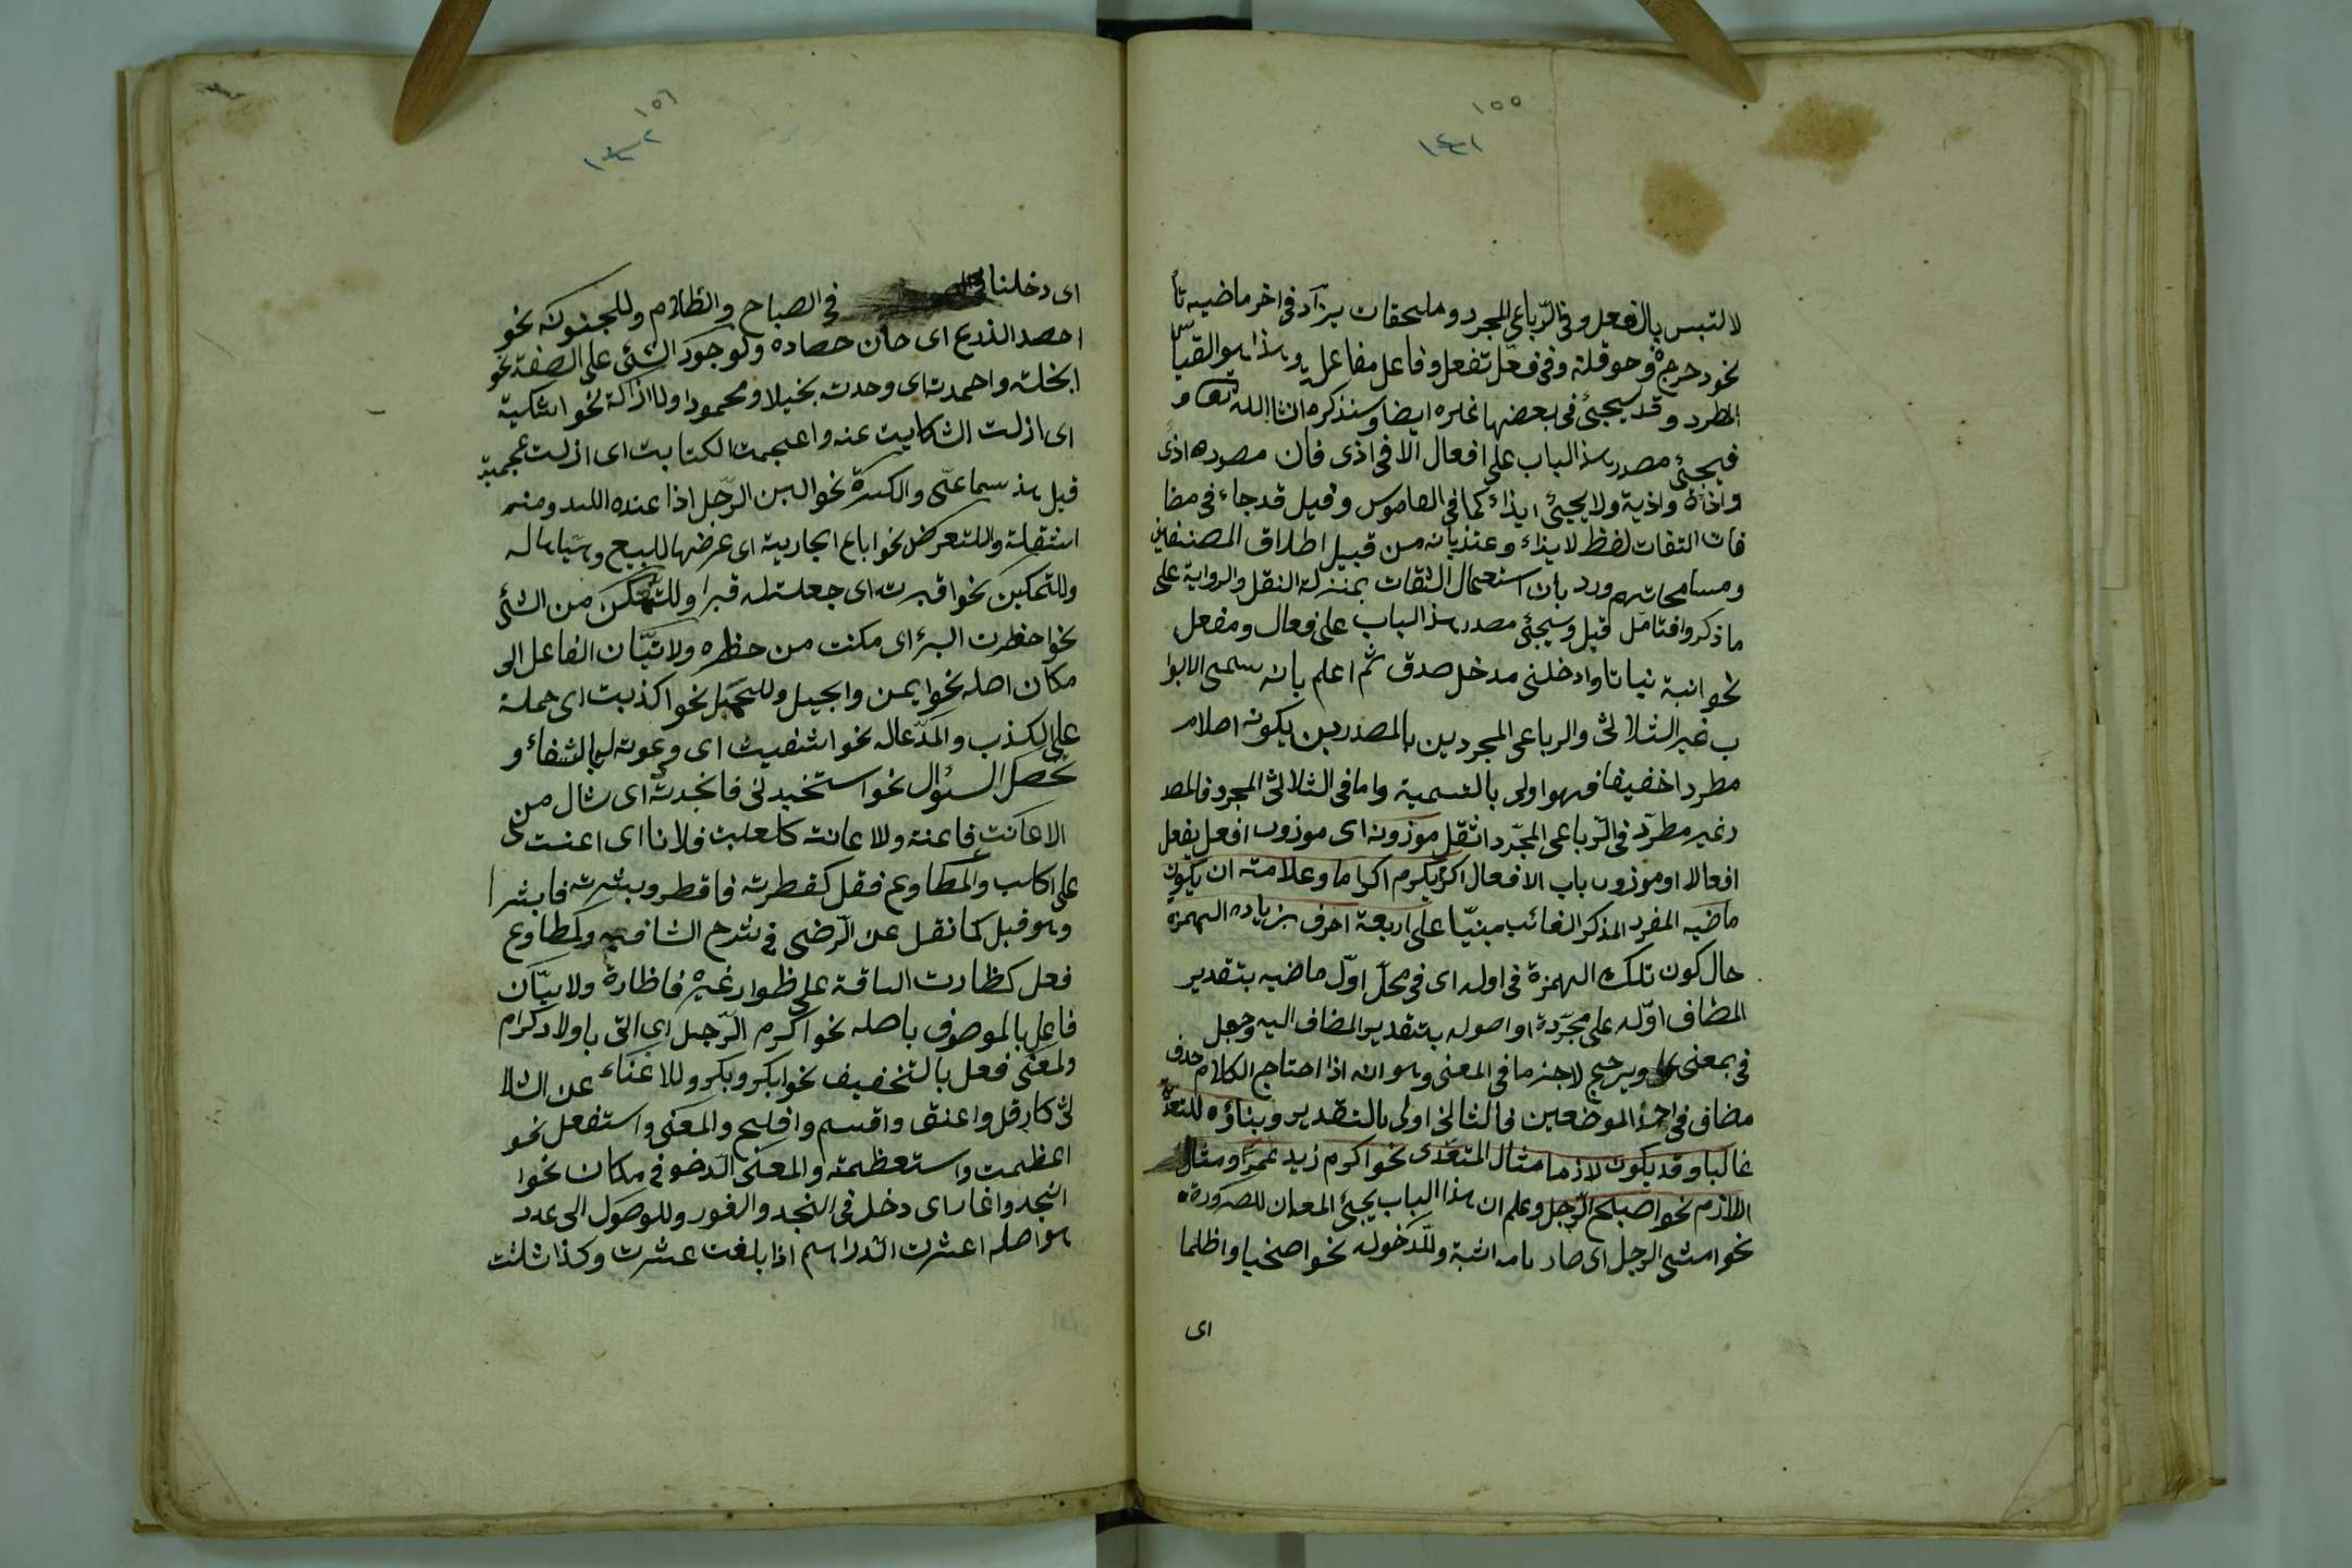 ١٥٥
١٤١
لالتبس بالفعل وفى الرّباعى المجرد وملحقات يزاد فى اخر ماضيه تأ
نحو دحرجة وحوقلة وفى فعّل تفعل وفاعل مفاعل وهذا هو القياس
المطرد وقد سيجئ فى بعضها غيره ايضا وسنذكره انشاالله تعا و
فيجئ مصدر هذا الباب على افعال الا فى اذى فان مصدره اذى
واذاة واذية ولا يجيئ ايذاء كما فى القاموس وقيل قد جاء فى مضا
فات الثقات لفظ لايذاء وعتذ بانه من قبيل اطلاق المصنفين
ومسامحاتهم ورد بان استعمال الثقات بمنزلة النقل والرواية على
ما ذكروا فتامّل قيل وسيجئ مصدر هذا الباب على فعال ومفعل
نحو انبة نباتا وادخلنى مدخل صدق ثم اعلم بانه سمى الابوا
ب غير الثلاثى والرباعى المجردين بالمصدرين يكونه اصلا م
مطردا خفيفا فهو اولى بالتسمية واما فى الثلاثى المجرد فالمصد
ر غير مطرّد فى الرّباعى المجّرد اثقل موزونه اى موزون افعل يفعل
افعالا او موزون باب الافعال اكرم يكرم اكراما وعلامته ان يكون
ماضيه المفرد المذكر الغائب مبنيّا على اربعة احرف بزياده الهمزة
حال كون تلك الهمزة فى اوله اى فى محلّ اوّل ماضيه بتقدير
المضاف اوّله على مجّردة او اصوله بتقدير المضاف اليه وجعل
فى بمعنى ويرجيح لاجزما فى المعنى وهو انه اذا احتاج الكلام حذف
مضاف فى احد الموضعين فالثانى اولى بالتقدير وبناؤه للتعدّ
غالبا وقد يكون لازما مثال المتعّدى نحو اكرم زيد عمرًا ومثال
اللازم نحو اصبلح الرّجل وعلم ان هذا الباب يجئ المعان للصرورة
نحو امشى الرجل اى صار ماشية وللّدخول نحو اصخيا واظلما
اى
١٥٦
١٤٢
اى دخلنا فى الصباح والظلام وللجنونة نحو
احصد الذرع اى حان حصاده ولوجود الشئ على الصفة نحو
ابخلته واحمدته اى وحدت بخيلا ومحمودا وللازاكة نحو اشكية
اى ازلت الشكايت عنه واعجمت الكتابت اى ازلت عجمية
قيل هذ سماعّى والكسرة نحو البن الرّجل اذا عنده اللبد ومنه
استقلة وللتعرض نحو اباع الجارية اى عرضها للبيع وهيّاها له
وللتمكين نحو اقبرته اى جعلت له قبرا وللتمكن من الشئ
نحو احفرت البئر اى مكنت من حظره ولاتبّان الفاعل الى
مكان اصله نحو ايمن والجيل وللحمل نحو اكذبت اى حملة
على الكذب والمّدعاله نحو اشفيت اى دعوته له بالشفاء و
تحصل السئوال نحو استخبدنى فانجدته اى شال من
الاعانت فاعنة وللاعانة كاعلبت فلانا اى اعنت
على اكلب والمطاوع فقل كقطرته فاقطر وبشرته فابشرا
وهو قيل كما نقل عن الرّضى فى شرح الشافيه وبمطاوع
فعل كظارت الناقة على ظوار غيره فاظارة ولابيّان
فاعل بالموصوف باصله نحو اكرم الرّجل اى اتى باولاد كرام
ولمعنى فعل بالتخفيف نحو ابكر وبكر وللاغناء عن الثلا
ثى كارقل واعنق واقسم وافليح والمعنى واستفعل نحو
اعظمت واستعظمته والمعنى الدخو فى مكان نحوا
انجد واغار اى دخل فى النجد والغور وللوصول الى عدد
هو اصله اعشرت الدراهم اذا بلغت عشرت وكذا ثلثت